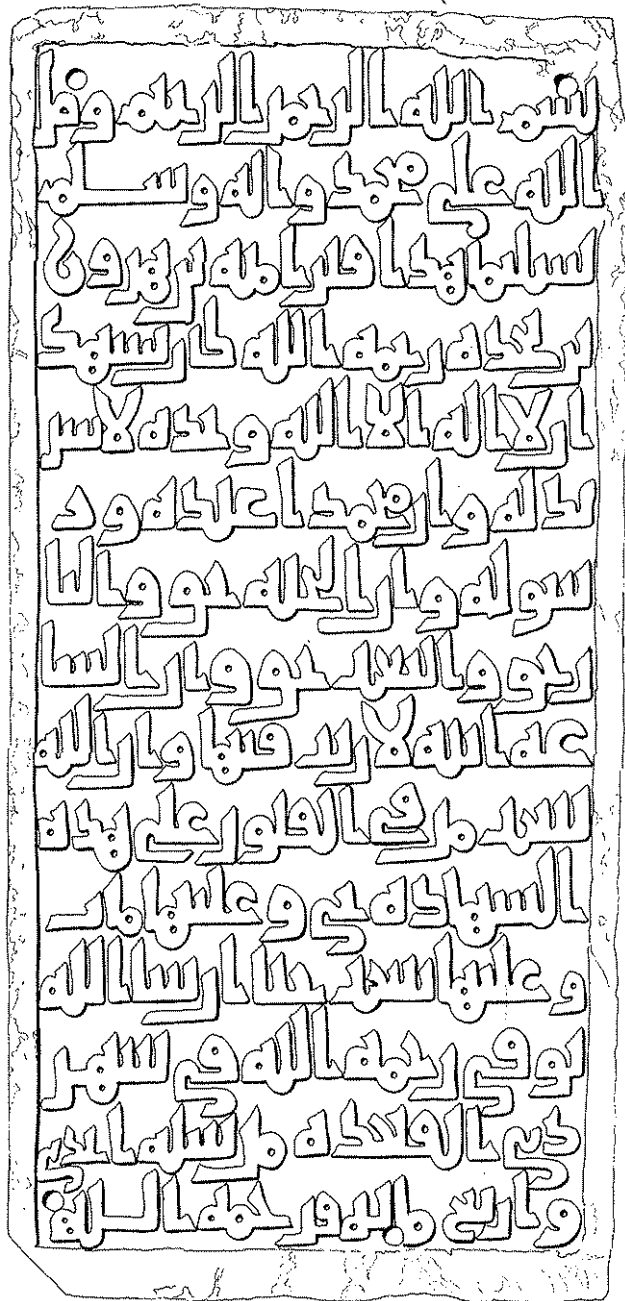 بسم الله الرحمن الرحيم وصل
الله على محمد واله وسلم
تسليما هذا قبر اميه بن هرون
بن عبده رحمه الله كان يشهد
ان لا اله الا الله وحده لا شر
يك له وان محمدا عبده ور
سوله وان الجنه حق والنا
ر حق والبعث حق وان السا
عه اتيه لا ريب فيها وان الله
يبعث من في القبور على هذه
الشهاده حي وعليها مات
وعليها يبعث حيا ان شا الله
توفي رحمه الله في شهر
ذي القعده من سنه احدى
واربع مايه فرحمه الله